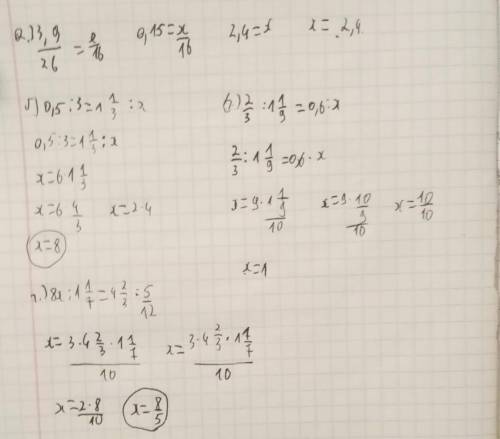 а.) 3,9/26 = x/16 0,15 = x/16 2,4 = x x = 2,4
б) 0,5 : 3 = 1 1/3 : x
0,5 : 3 = 1 1/3 : x
x = 6 · 1 1/3
x = 6 4/3 x = 2 · 4
x = 8
в.) 2/3 : 1 1/9 = 0,6 : x
2/3 : 1 1/9 = 0,6 · x
x = 9 · 1 1/9 / 10 x = 9 · 10/9 / 10 x = 10/10
x = 1
г.) 8x : 1 1/7 = 4 2/3 : 5/12
x = 3 · 4 2/3 · 1 1/7 / 10 x = 3 · 4 2/3 · 1 1/7 / 10
x = 2 · 8/10 x = 8/5